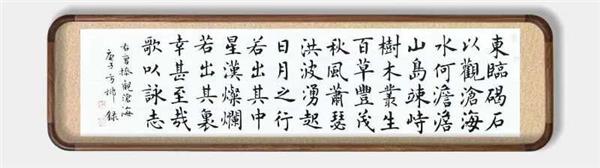 東臨碣石
以觀滄海
水何澹澹
山島竦峙
樹木叢生
百草豐茂
秋風蕭瑟
洪波湧起
日月之行
若出其中
星漢燦爛
若出其裏
幸甚至哉
歌以詠志
右曹操觀滄海
庚子 錄